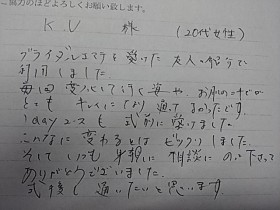 ご協力のほどよろしくお願い致します。
K.U 様 (20代女性)
ブライダルエステを受けた友人の紹介で
利用しました。
毎回変わって行く姿や、お肌のキメが
とてもキレイになり通ってよかったです。
1dayコースも式前に受けました。
こんなに変わるとはビックリしました。
そしていつも親身に相談にのって下さって
ありがとうございました。
式後も通いたいと思います。